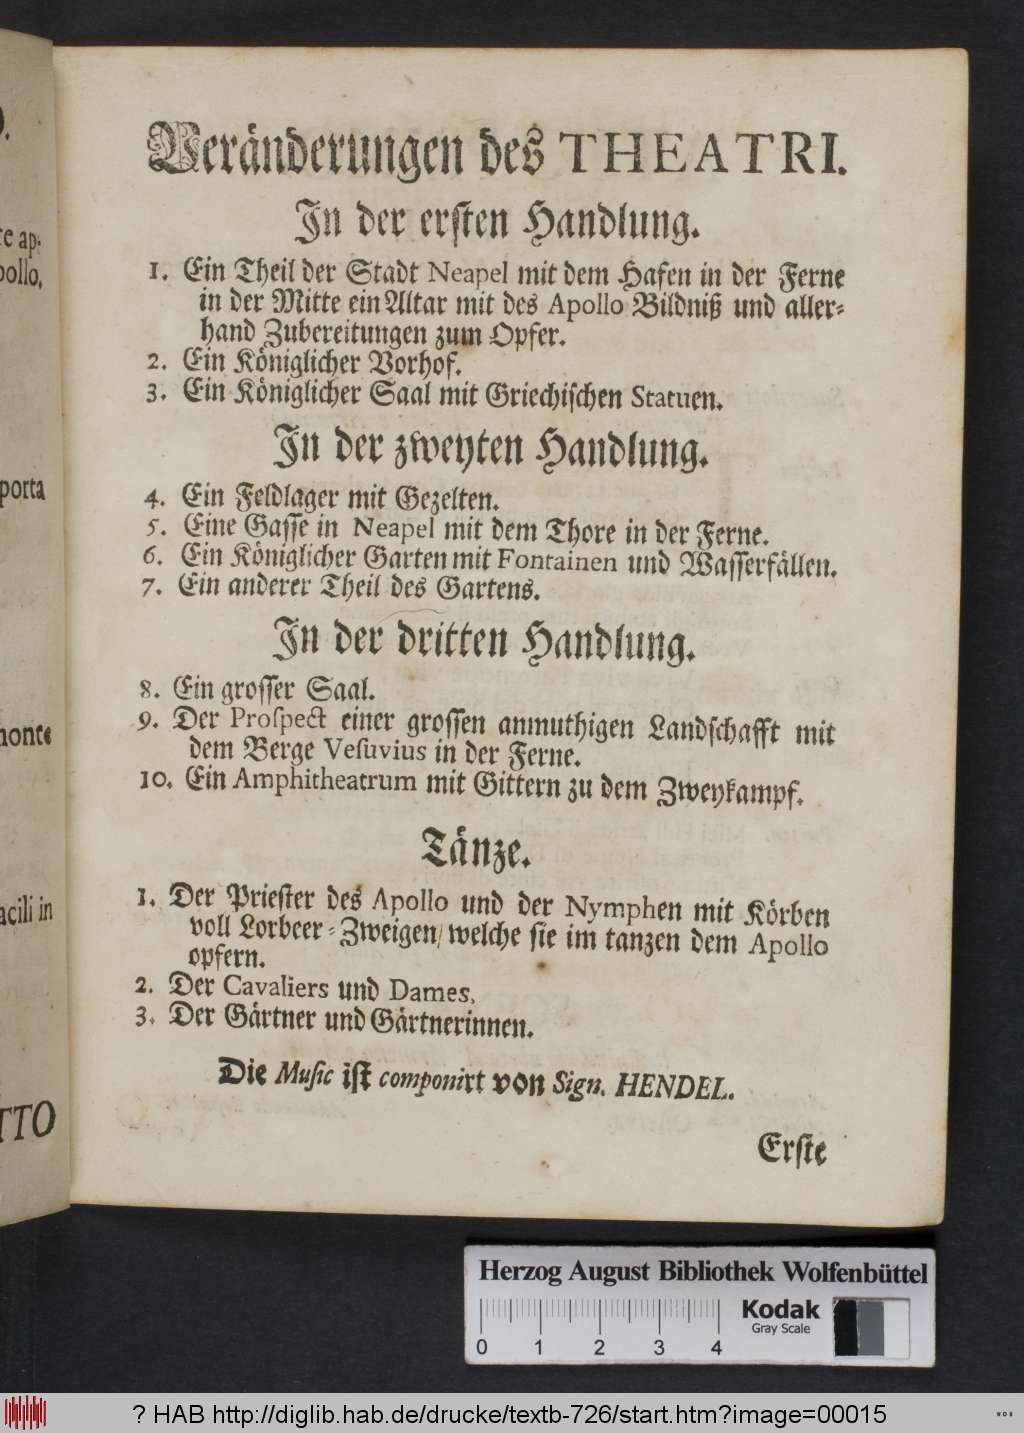 Veränderungen des THEATRI.
In der ersten Handlung.
1. Ein Theil der Stadt Neapel mit dem Hafen in der Ferne
in der Mitte ein Altar mit des Apollo Bildniß und aller-
hand Zubereitungen zum Opfer.
2. Ein Königlicher Vorhof.
3. Ein Königlicher Saal mit Griechischen Statuen.
In der zweyten Handlung.
4. Ein Feldlager mit Gezelten.
5. Eine Gasse in Neapel mit dem Thore in der Ferne.
6. Ein Königlicher Garten mit Fontainen und Wasserfällen.
7. Ein anderer Theil des Gartens.
In der dritten Handlung.
8. Ein grosser Saal.
9. Der Prospect einer grossen anmuthigen Landschafft mit
dem Berge Vesuvius in der Ferne.
10. Ein Amphitheatrum mit Gittern zu dem Zweykampf.
Tänze.
1. Der Priester des Apollo und der Nymphen mit Körben
voll Lorbeer-Zweigen/ welche sie im tanzen dem Apollo
opfern.
2. Der Cavaliers und Dames,
3. Der Gärtner und Gärtnerinnen.
Die Music ist componirt von Sign. HENDEL.
Erste
re ap-
pollo,
porta
acili in
TTO
Herzog August Bibliothek Wolfenbüttel
0 1 2 3 4
Kodak
Gray Scale
? HAB http://diglib.hab.de/drucke/textb-726/start.htm?image=00015